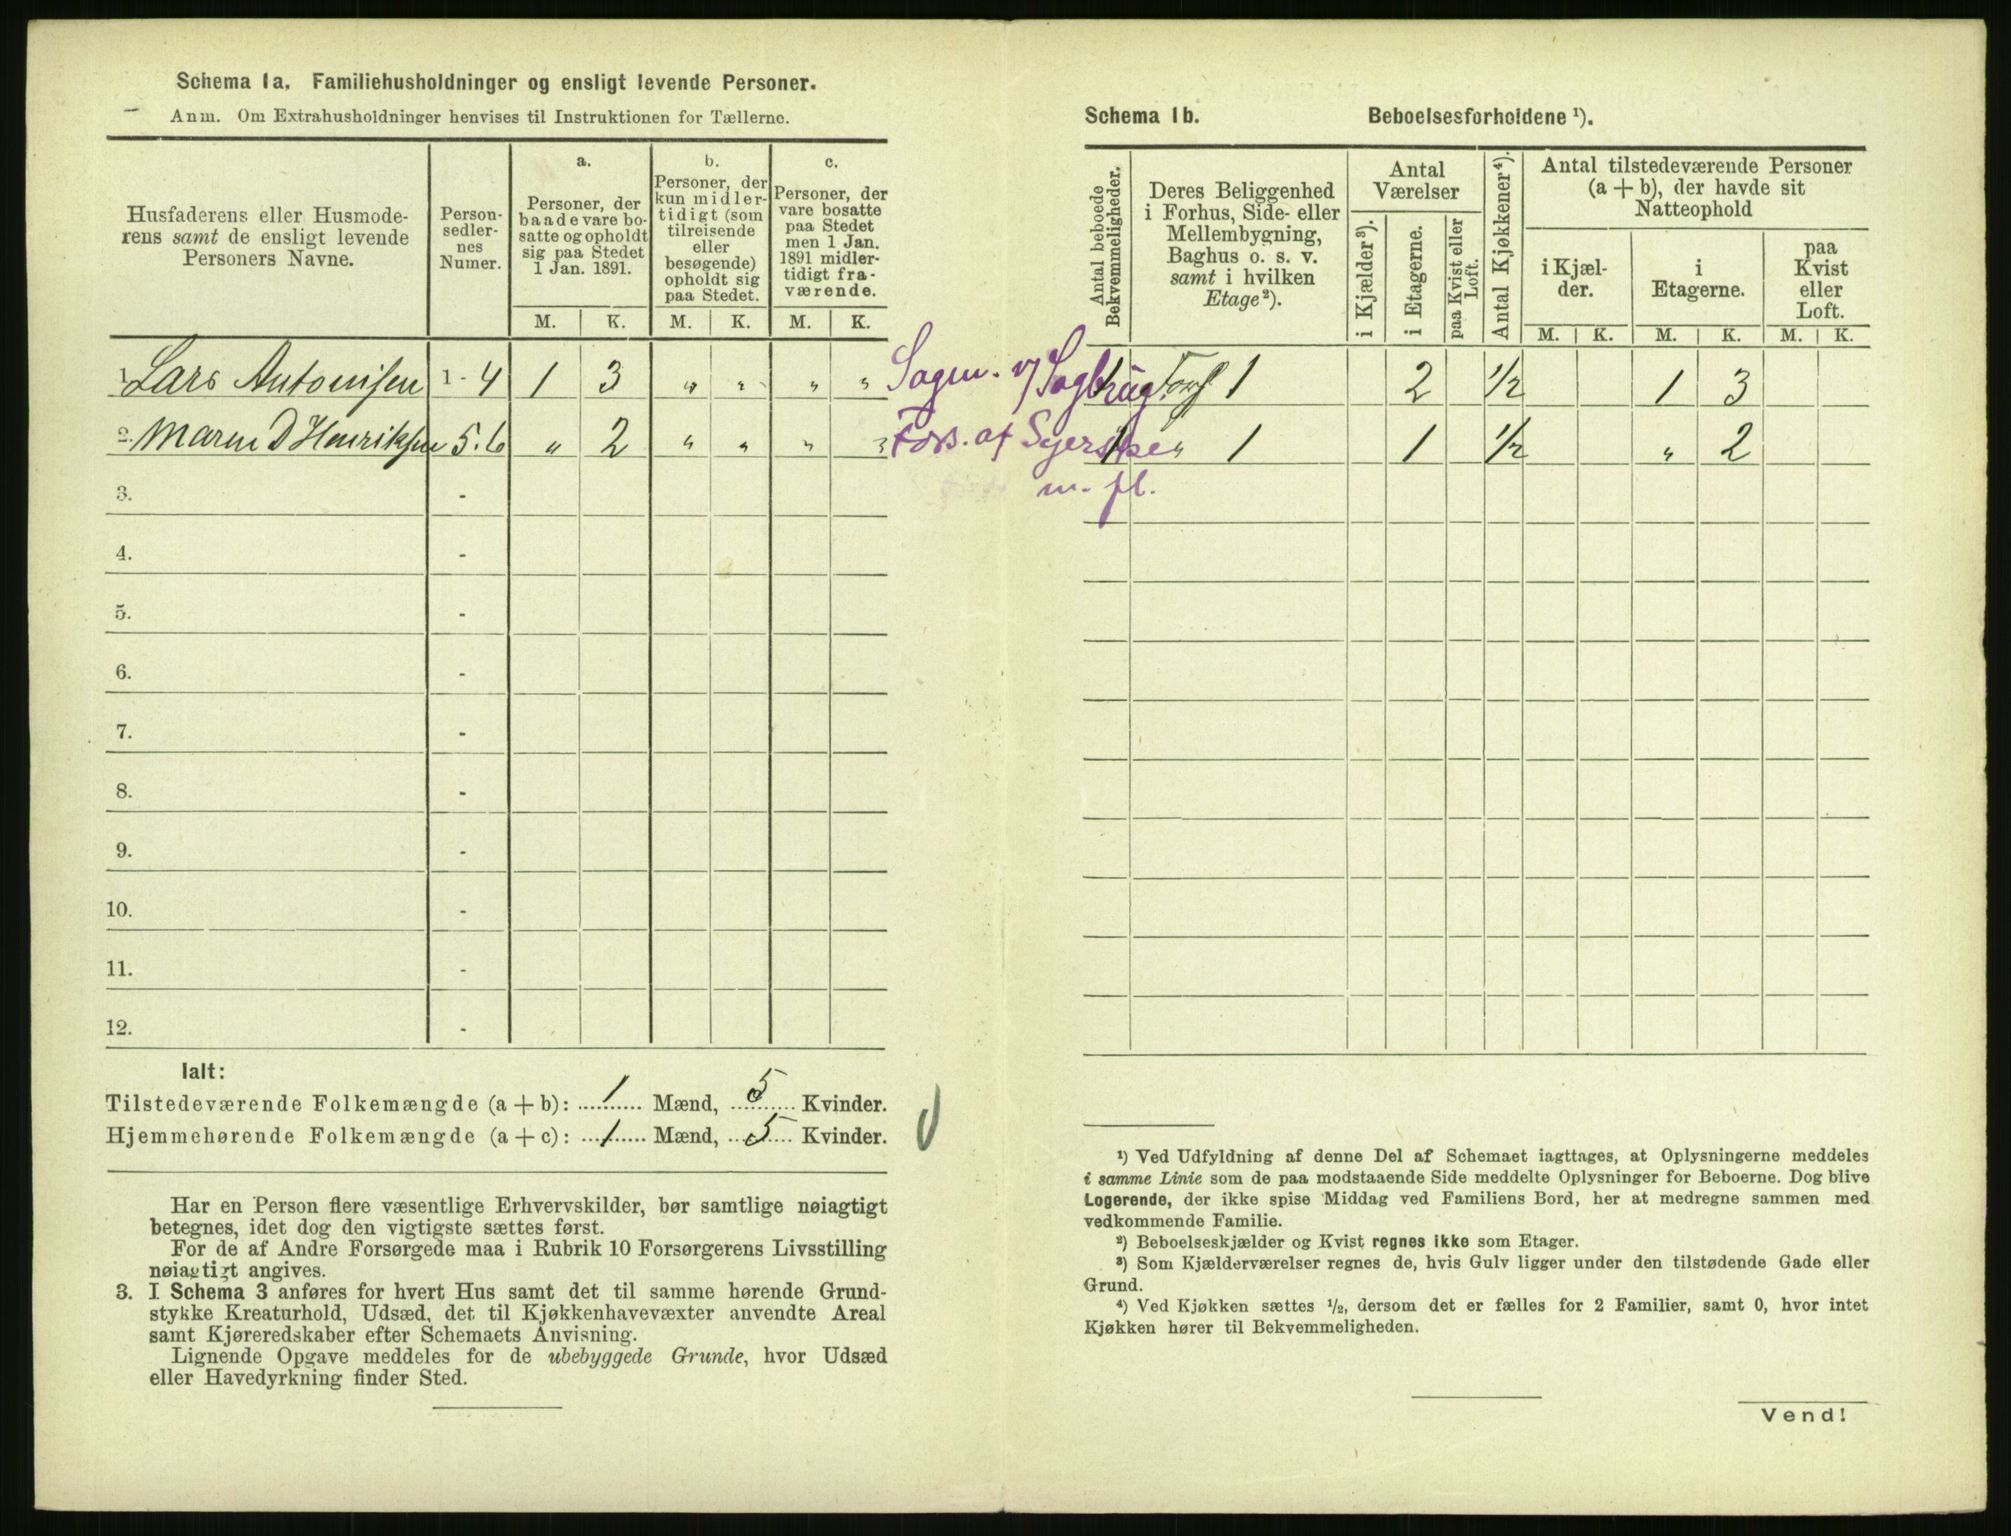 Schema 1a. Familiehusholdninger og ensligt levende Personer.
Anm. Om Extrahusholdninger henvises til Instruktionen for Tællerne.
Husfaderens eller Husmode-
rens samt de ensligt levende
Personers Navne.
Person-
sedler-
nes
Numer.
a.
Personer, der
baade vare bo-
satte og opholdt
sig paa Stedet
1 Jan. 1891.
b.
Personer, der
kun midler-
tidigt (som
tilreisende
eller
besøgende)
opholdt sig
paa Stedet.
c.
Personer, der
vare bosatte
paa Stedet
men 1 Jan.
1891 midler-
tidigt fra-
værende.
M. K. M. K. M. K.
1. Lars Antonisen 1 - 4 1 3 " " " "
2. Maren D Henriksen 5 - 6 " 2 " " " "
3. -
4. -
5. -
6. -
7. -
8. -
9. -
10. -
11. -
12. -
Ialt:
Tilstedeværende Folkemængde (a + b): 1 Mænd, 5 Kvinder.
Hjemmehørende Folkemængde (a + c): 1 Mænd, 5 Kvinder.
Har en Person flere væsentlige Erhvervskilder, bør samtlige nøiagtigt
betegnes, idet dog den vigtigste sættes først.
For de af Andre Forsørgede maa i Rubrik 10 Forsørgerens Livsstilling
nøiagtigt angives.
3. I Schema 3 anføres for hvert Hus samt det til samme hørende Grund-
stykke Kreaturhold, Udsæd, det til Kjøkkenhavevæxter anvendte Areal
samt Kjøreredskaber efter Schemaets Anvisning.
Lignende Opgave meddeles for de ubebyggede Grunde, hvor Udsæd
eller Havedyrkning finder Sted.
Schema 1b. Beboelsesforholdene ¹).
Antal beboede
Bekvemmeligheder.
Deres Beliggenhed
i Forhus, Side- eller
Mellembygning,
Baghus o. s. v.
samt i hvilken
Etage ²).
Antal
Værelser
i Kjælder ³).
i Etagerne.
paa Kvist eller
Loft.
Antal Kjøkkener ⁴).
Antal tilstedeværende Personer
(a + b), der havde sit
Natteophold
i Kjæl-
der.
i
Etagerne.
paa
Kvist
eller
Loft.
M. K. M. K. M. K.
Sagm. v/ Sagbrug 1 Forh 1 2 1/2 1 3
Fors. af 1 " 1 1 1/2 " 2
m. fl.
¹) Ved Udfyldning af denne Del af Schemaet iagttages, at Oplysningerne meddeles
i samme Linie som de paa modstaaende Side meddelte Oplysninger for Beboerne. Dog blive
Logerende, der ikke spise Middag ved Familiens Bord, her at medregne sammen med
vedkommende Familie.
²) Beboelseskjælder og Kvist regnes ikke som Etager.
³) Som Kjælderværelser regnes de, hvis Gulv ligger under den tilstødende Gade eller
Grund.
⁴) Ved Kjøkken sættes ½, dersom det er fælles for 2 Familier, samt 0, hvor intet
Kjøkken hører til Bekvemmeligheden.
Vend!